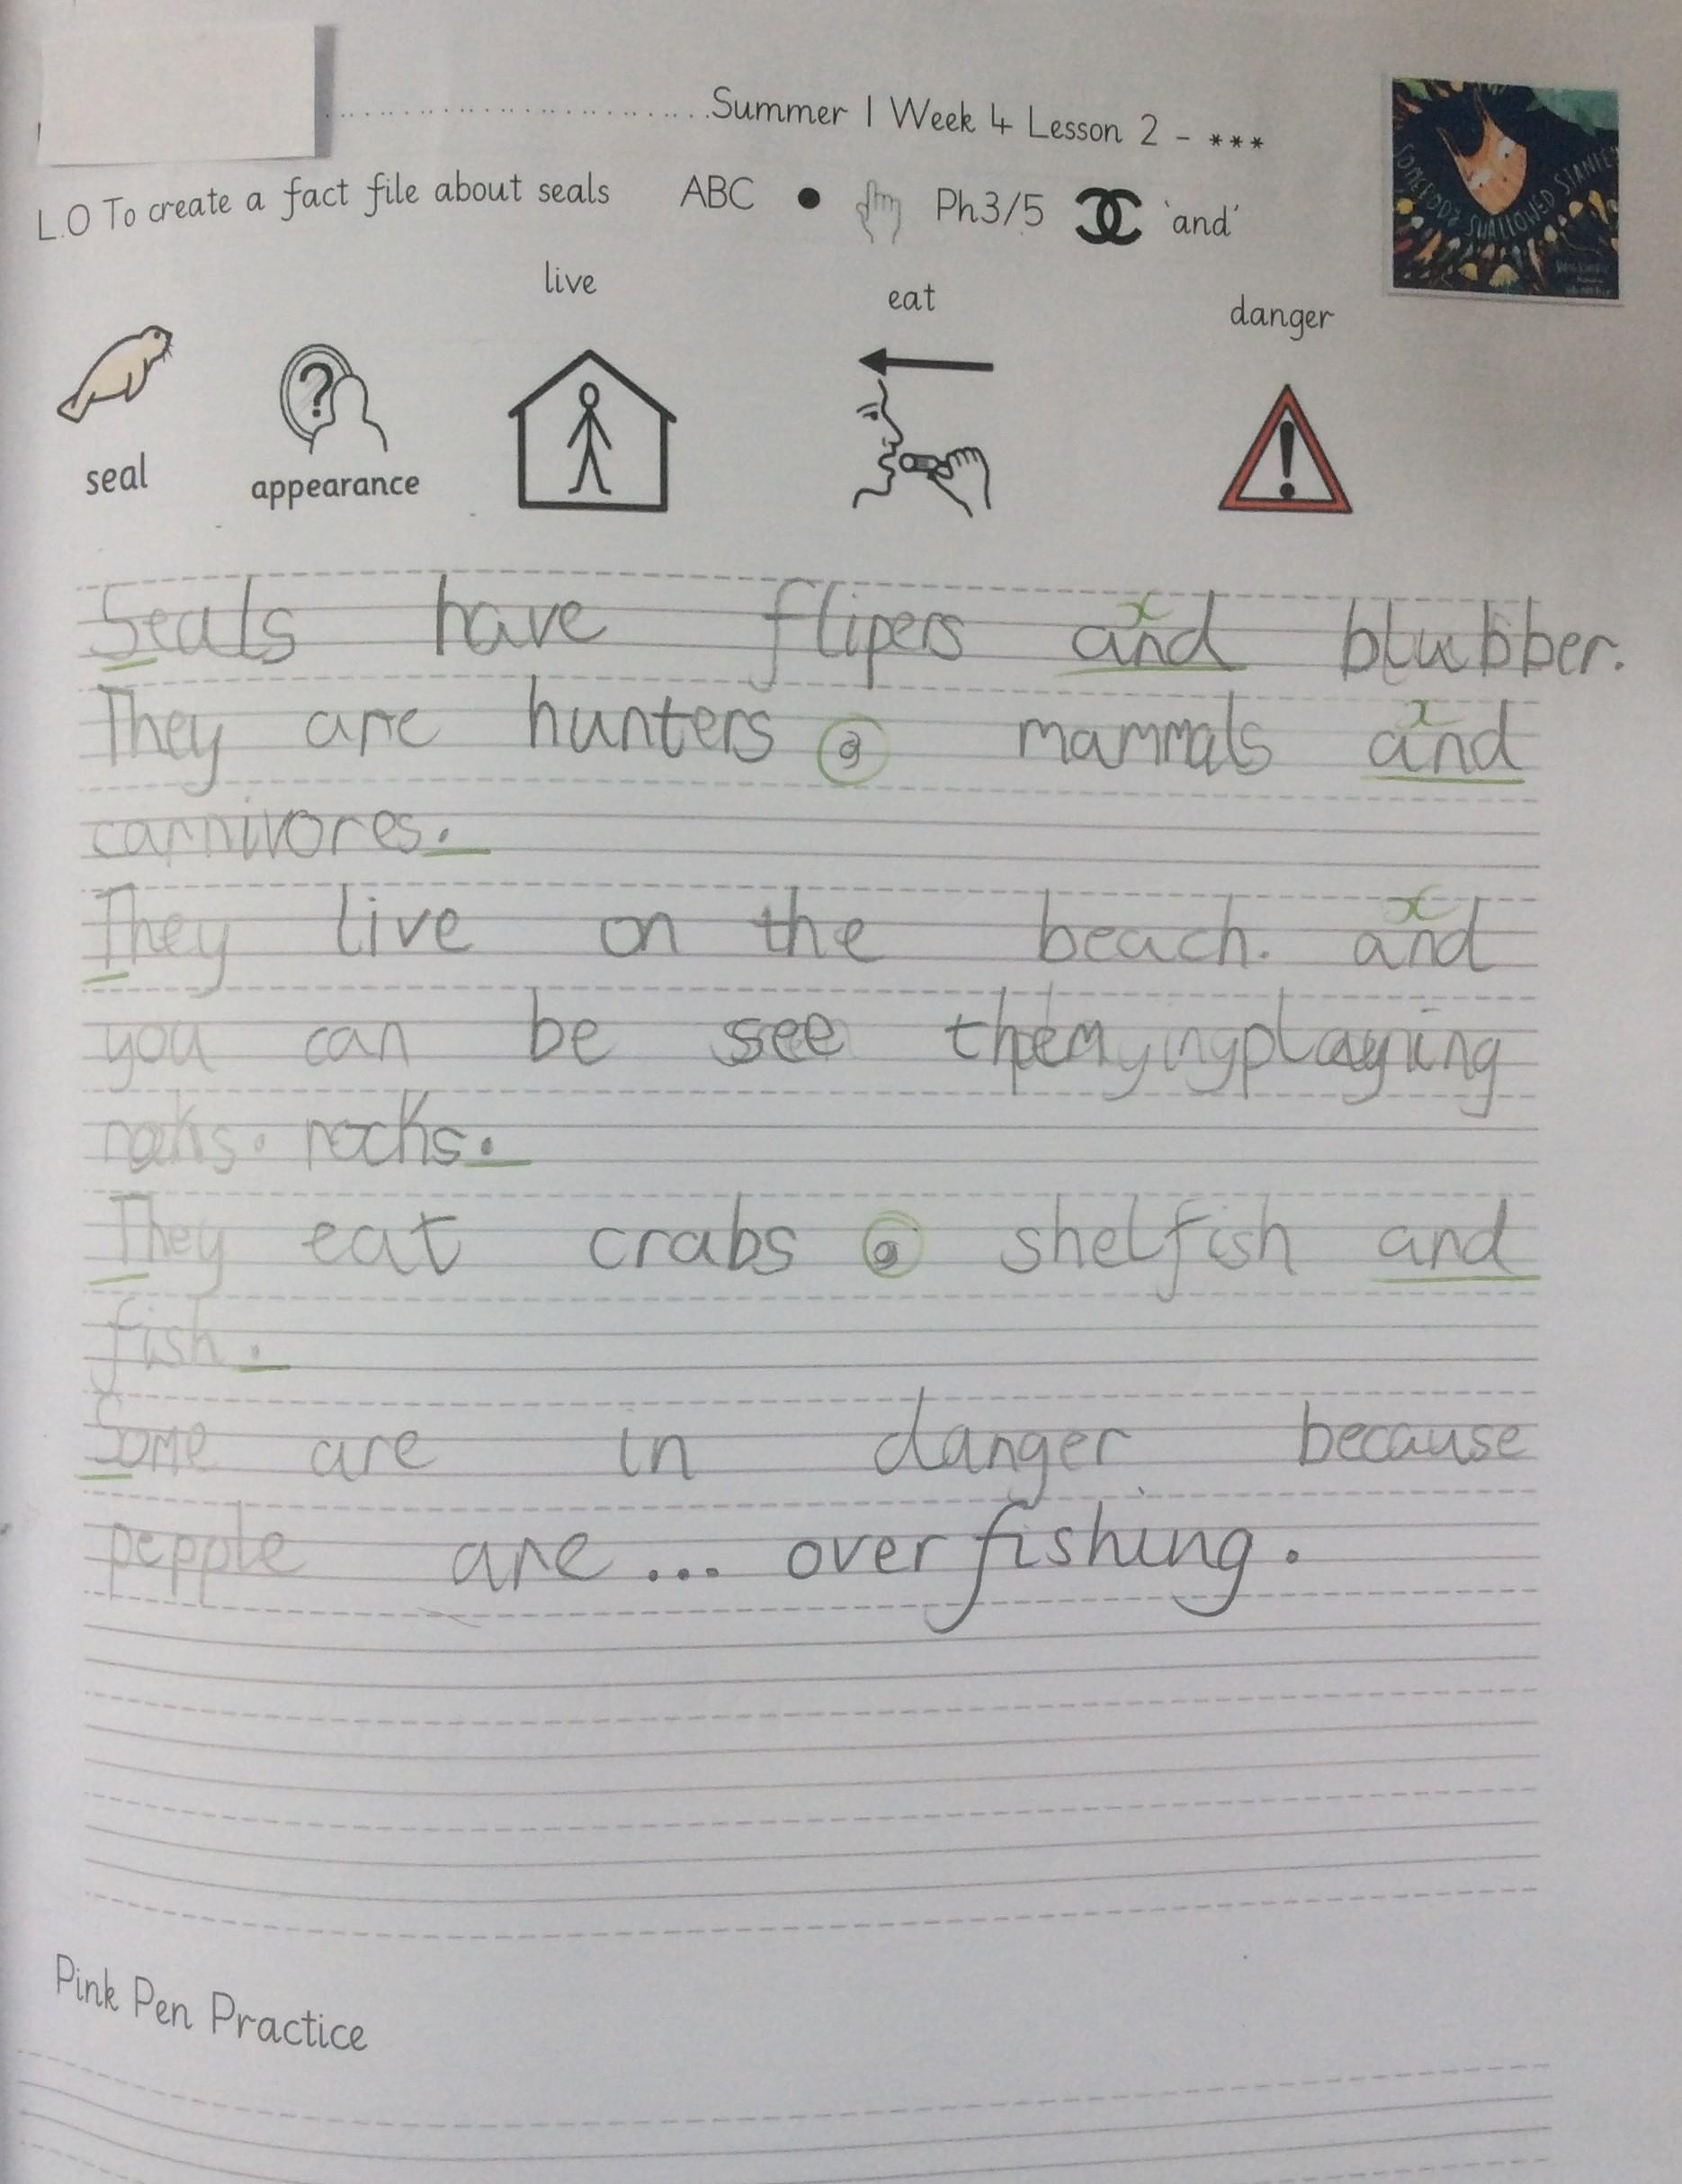 Summer 1 Week 4 Lesson 2 - ***
L.O To create a fact file about seals ABC • Ph3/5 'and'
SOMEBODY SWALLOWED STANLEY
live eat danger
?
!
seal appearance
Seals have flipers and blubber.
They are hunters , mammals and
carnivores.
They live on the beach. and
you can be see them playing
roks. rocks.
They eat crabs , shelfish and
fish.
Some are in danger because
pepple are... over fishing.
Pink Pen Practice